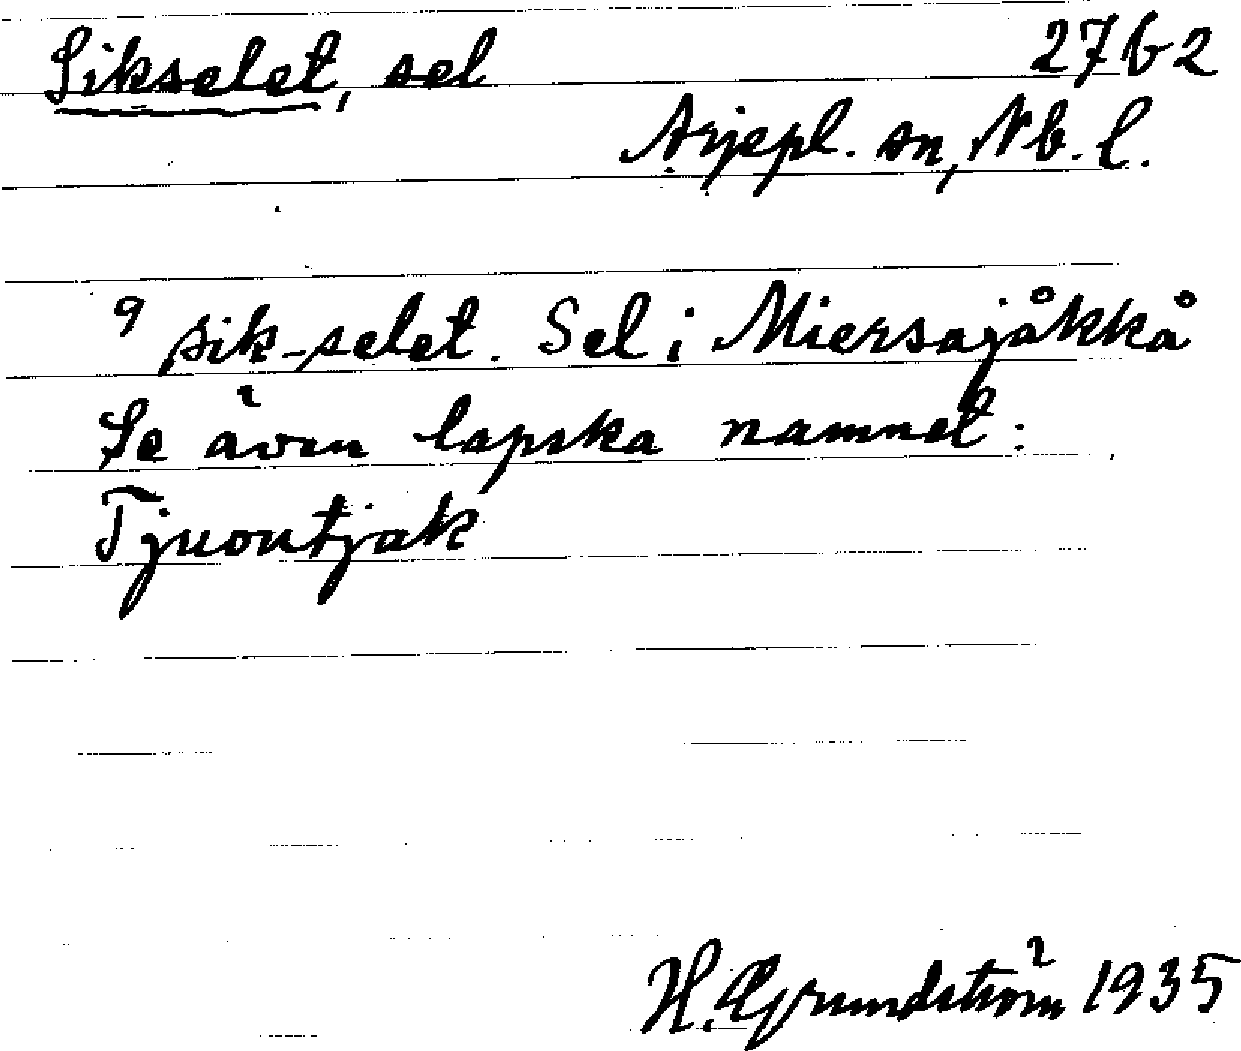 Sikselet, sel 27b2
Arjepl. sn, Nb. l.
9 sik-selet. Sel i Miersajåkkå
Se även lapska namnet:
Tjuoutjak
H. Grundström 1935